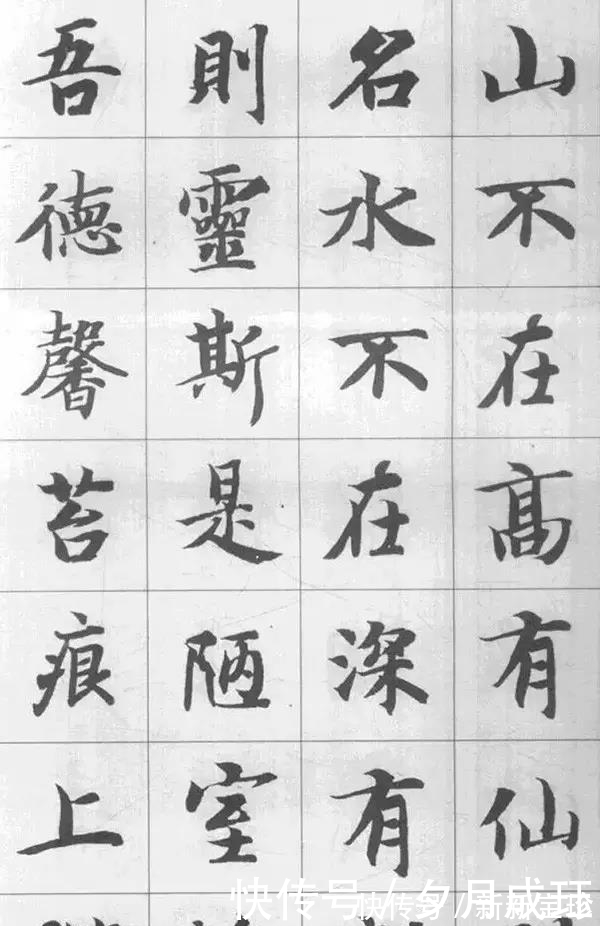 山不在高有仙
名水不在深有
則靈斯是陋室
吾德馨苔痕上
快传号